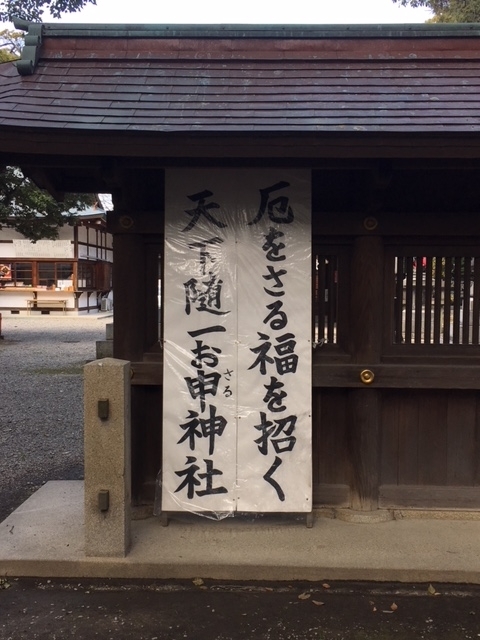 厄をさる福を招く
天下随一お申神社
さる